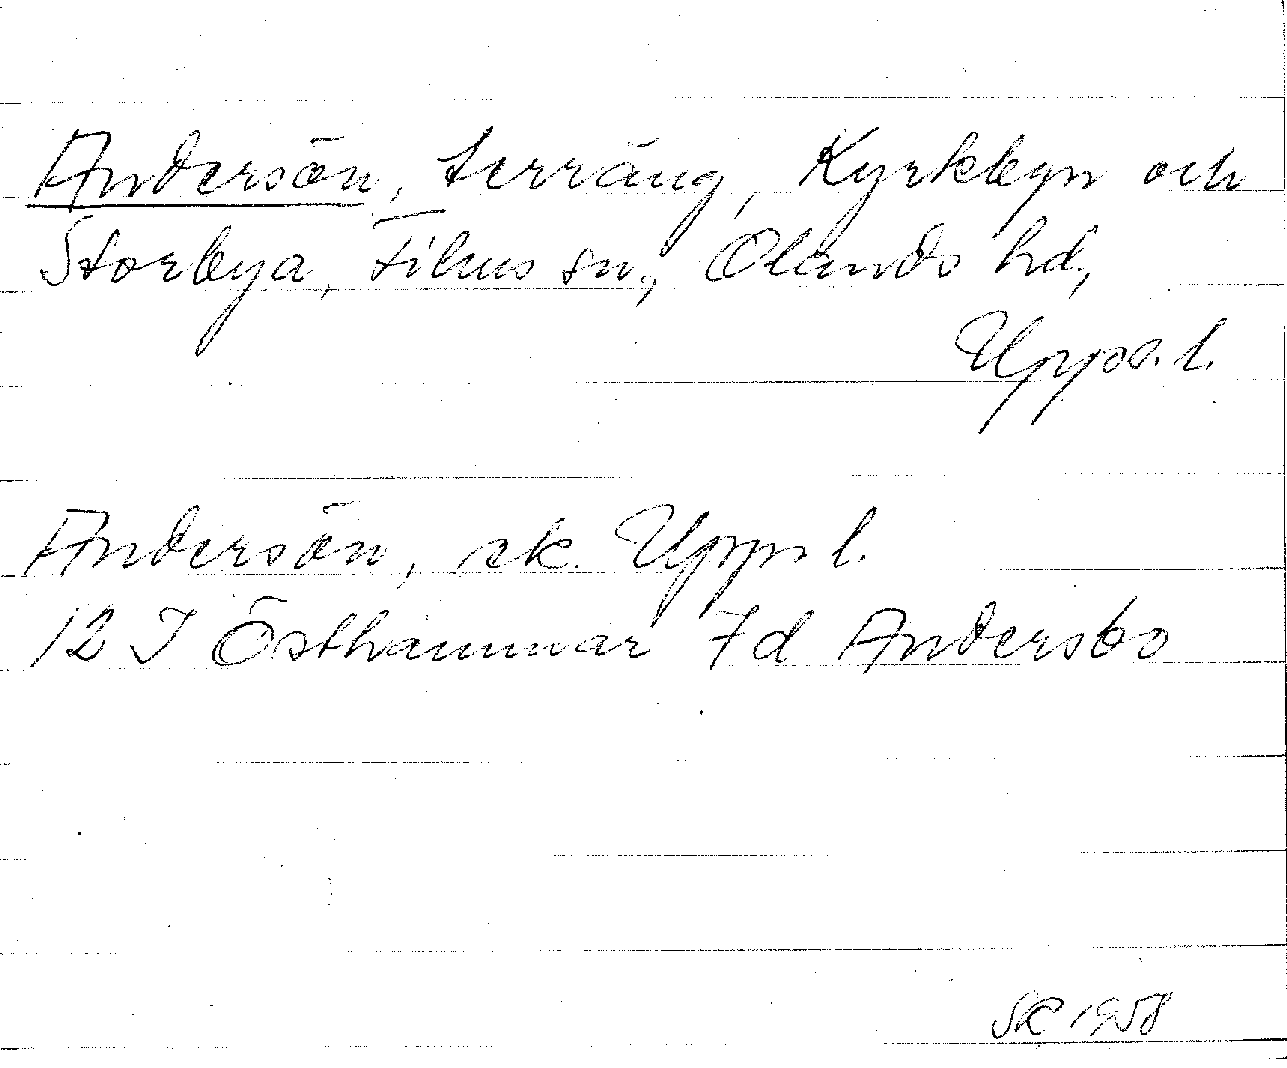 Andersön, terräng, Kyrkbyn och
Storbya, Films sn., Olands hd,
Upps. l.
Andersön, ek. Upps l.
12 I Östhammar 7d Andersbo
SK 1958